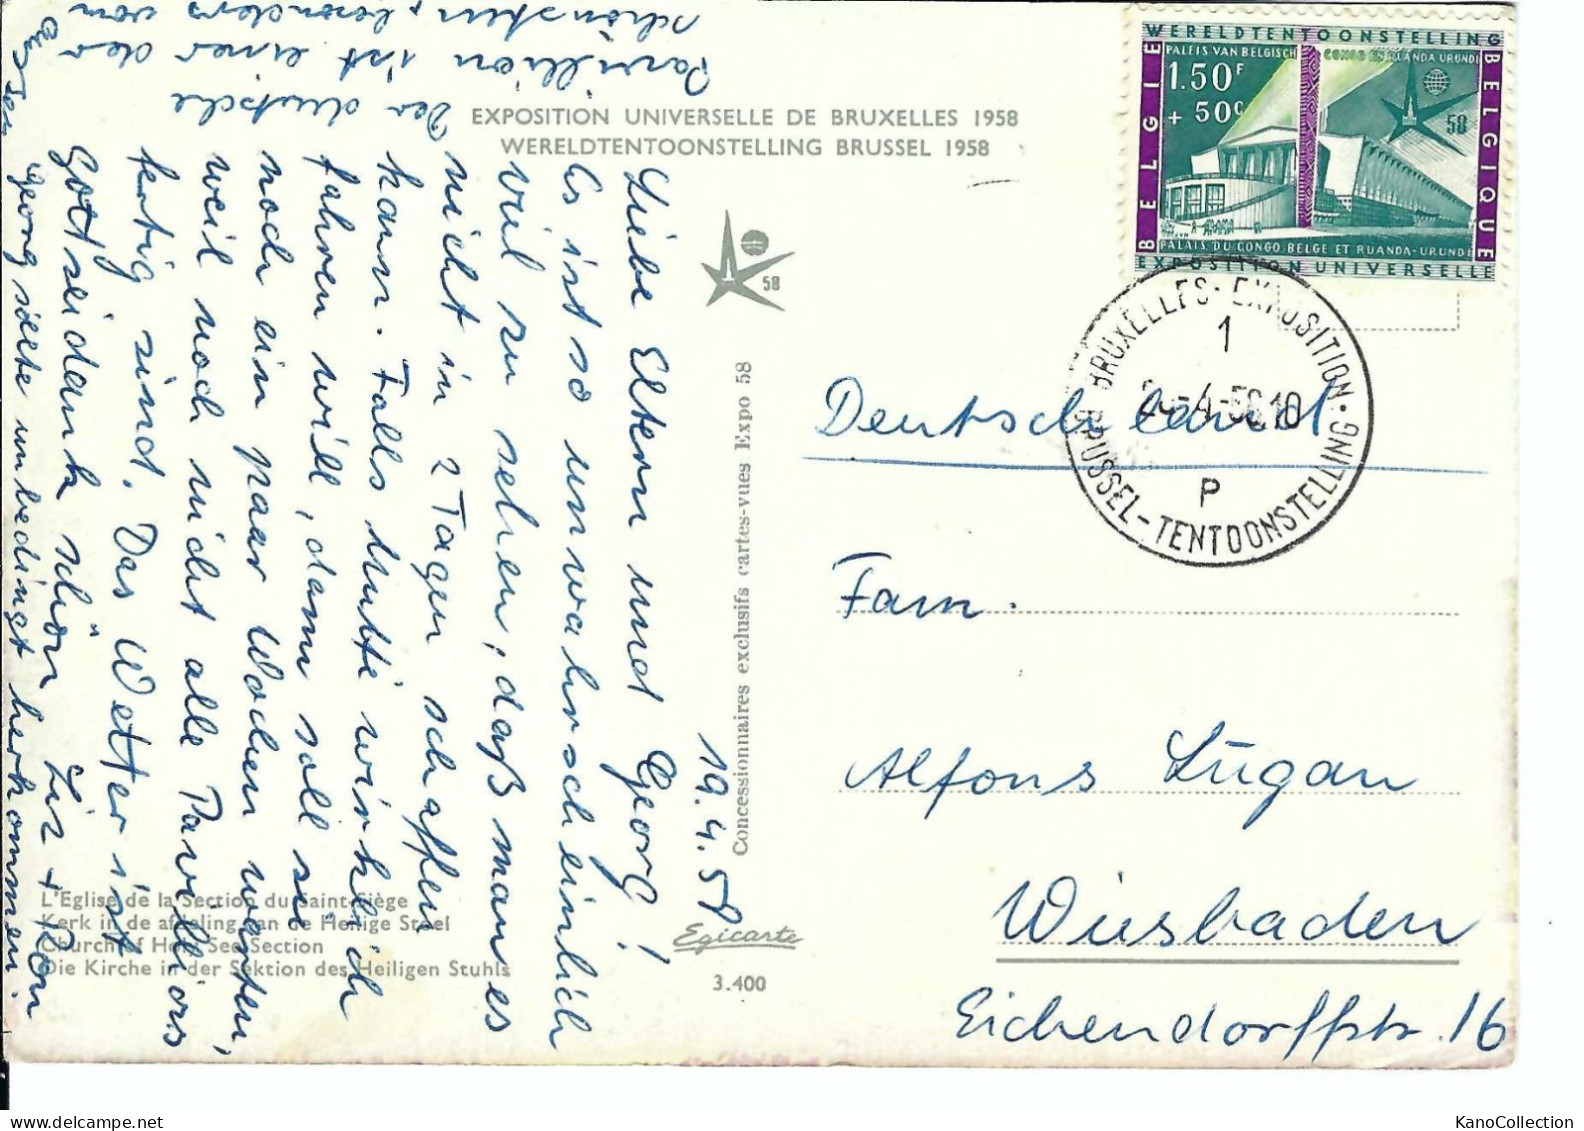 EXPOSITION UNIVERSELLE DE BRUXELLES 1958
WERELDTENTOONSTELLING BRUSSEL 1958
58
19.4.58
Liebe Eltern und Georg!
Es ist so unwahrscheinlich
viel zu sehen, daß man es
nicht in 2 Tagen schaffen
kann. Falls Mutti wirklich
fahren will, dann soll sie
noch ein paar Wochen warten,
weil noch nicht alle Pavillions
fertig sind. Das Wetter ist
Gottseidank schön
Georg sollte unbedingt herkommen.
Der deutsche
Pavillion ist einer der
schönsten, besonders von
aussen
L'Eglise de la Section du Saint-Siège
Kerk in de afdeling van de Heilige Stoel
Church of Holy See Section
Die Kirche in der Sektion des Heiligen Stuhls
Concessionnaires exclusifs cartes-vues Expo 58
Egicarte
3.400
WERELDTENTOONSTELLING
PALEIS VAN BELGISCH CONGO EN RUANDA URUNDI
1.50F
+ 50c
58
BELGIE
BELGIQUE
PALAIS DU CONGO BELGE ET RUANDA-URUNDI
EXPOSITION UNIVERSELLE
BRUXELLES-EXPOSITION
1
-4-58 10
P
BRUSSEL-TENTOONSTELLING
Deutschland
Fam.
Alfons Lugan
Wiesbaden
Eichendorffstr. 16
KanoCollection